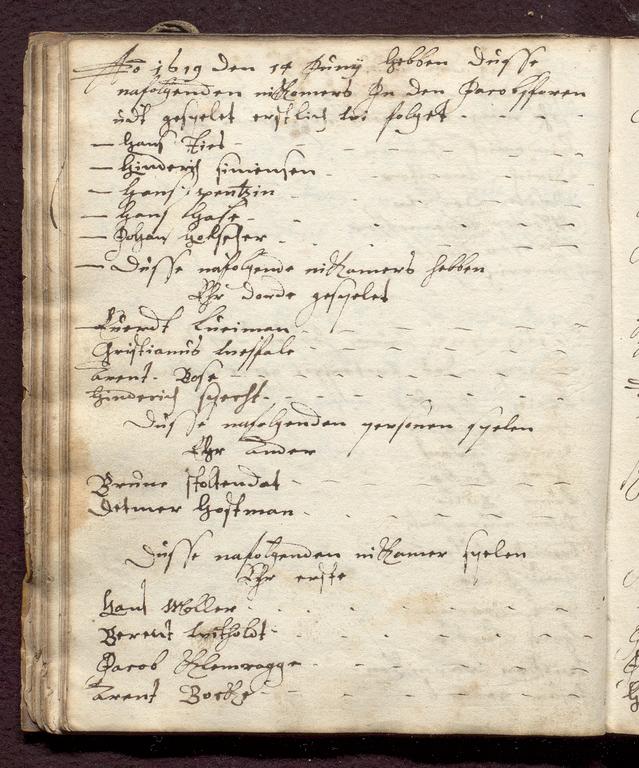 Ao 1619 den 14 Juny hebben dusse
nafolgenden nikomers In den Jacobsforen
udt gespelet erstlich wi folget
Hans Ties
Hinderich simensen
Hans pentzin
Hans Hase
Johan
Dusse nafolgende nikamers hebben
Ehr dorde gespelet
Everdt Lueiman
Cristianus westfale
Arent Bose
Hinderich specht
Dusse nafolgenden personen spelen
Ehr ander
Brune stoltendat
Detmer Hostman
Dusse nafolgenden nikamer spelen
Ehr erste
Hans Moller
Berent witholdt
Jacob Klenwagge
Arent Bocke